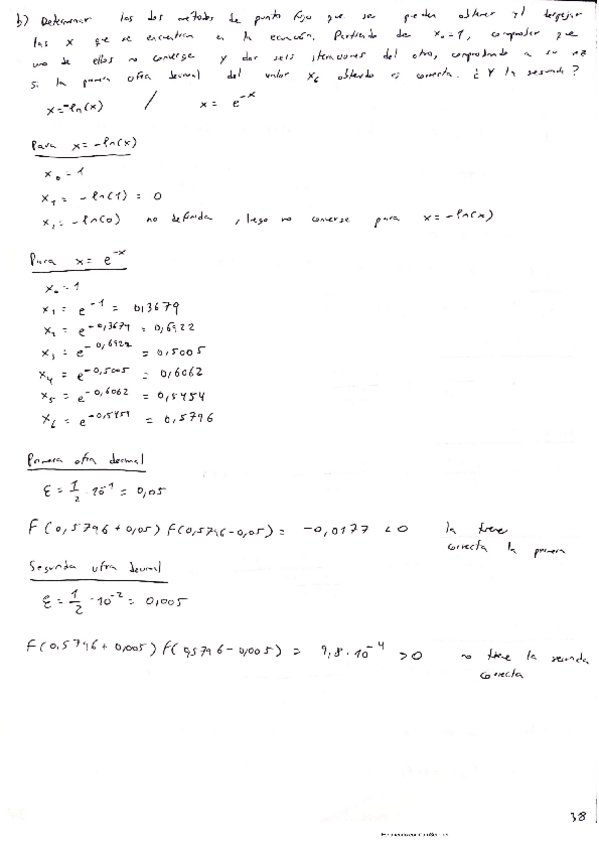 b) Determinar los dos métodos de punto fijo que se pueden obtener al despejar
las x que se encuentran en la ecuación. Partiendo de x₀=1, comprobar que
uno de ellos no converge y dar seis iteraciones del otro, comprobando a su vez
si la primera cifra decimal del valor x₆ obtenido es correcta. ¿Y la segunda?
x=-ln(x) / x = e^-x
Para x=-ln(x)
x₀=1
x₁ = -ln(1) = 0
x₂ = -ln(0) no definida, luego no converge para x=-ln(x)
Para x= e^-x
x₀=1
x₁ = e^-1 = 0,3679
x₂ = e^-0,3679 = 0,6922
x₃ = e^-0,6922 = 0,5005
x₄ = e^-0,5005 = 0,6062
x₅ = e^-0,6062 = 0,5454
x₆ = e^-0,5454 = 0,5796
Primera cifra decimal
ε = 1/2 · 10^-1 = 0,05
F(0,5796+0,05) F(0,5796-0,05) = -0,0177 < 0 la tiene
correcta la primera
Segunda cifra decimal
ε = 1/2 · 10^-2 = 0,005
F(0,5796+0,005) F(0,5796-0,005) = 9,8·10^-4 >0 no tiene la segunda
correcta
38